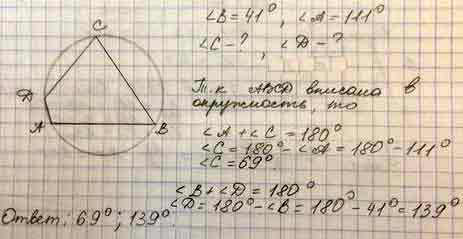 C
D
A
B
∠B = 41°, ∠A = 111°
∠C - ?, ∠D - ?
Т.к ABCD вписана в
окружность, то
∠A + ∠C = 180°
∠C = 180° - ∠A = 180° - 111°
∠C = 69°
∠B + ∠D = 180°
∠D = 180° - ∠B = 180° - 41° = 139°
Ответ: 69°; 139°